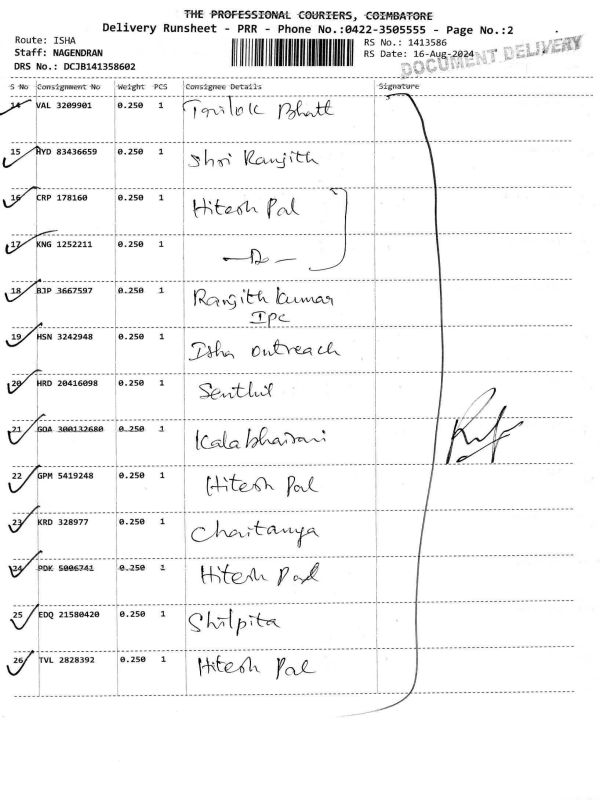 THE PROFESSIONAL COURIERS, COIMBATORE
Delivery Runsheet - PRR - Phone No.:0422-3505555 - Page No.:2
Route: ISHA
Staff: NAGENDRAN
DRS No.: DCJB141358602
RS No.: 1413586
RS Date: 16-Aug-2024
DOCUMENT DELIVERY
S No Consignment No Weight PCS Consignee Details Signature
14 VAL 3209901 0.250 1 Trilok Bhatt
15 HYD 83436659 0.250 1 Shri Ranjith
16 CRP 178160 0.250 1 Hitesh Pal
17 KNG 1252211 0.250 1 - Do -
18 BJP 3667597 0.250 1 Ranjith Kumar
IPC
19 HSN 3242948 0.250 1 Isha Outreach
20 HRD 20416098 0.250 1 Senthil
21 GOA 300132680 0.250 1 Kalabhairavi
22 GPM 5419248 0.250 1 Hitesh Pal
23 KRD 328977 0.250 1 Chaitanya
24 PDK 5006741 0.250 1 Hitesh Pal
25 EDQ 21580420 0.250 1 Shilpita
26 TVL 2828392 0.250 1 Hitesh Pal